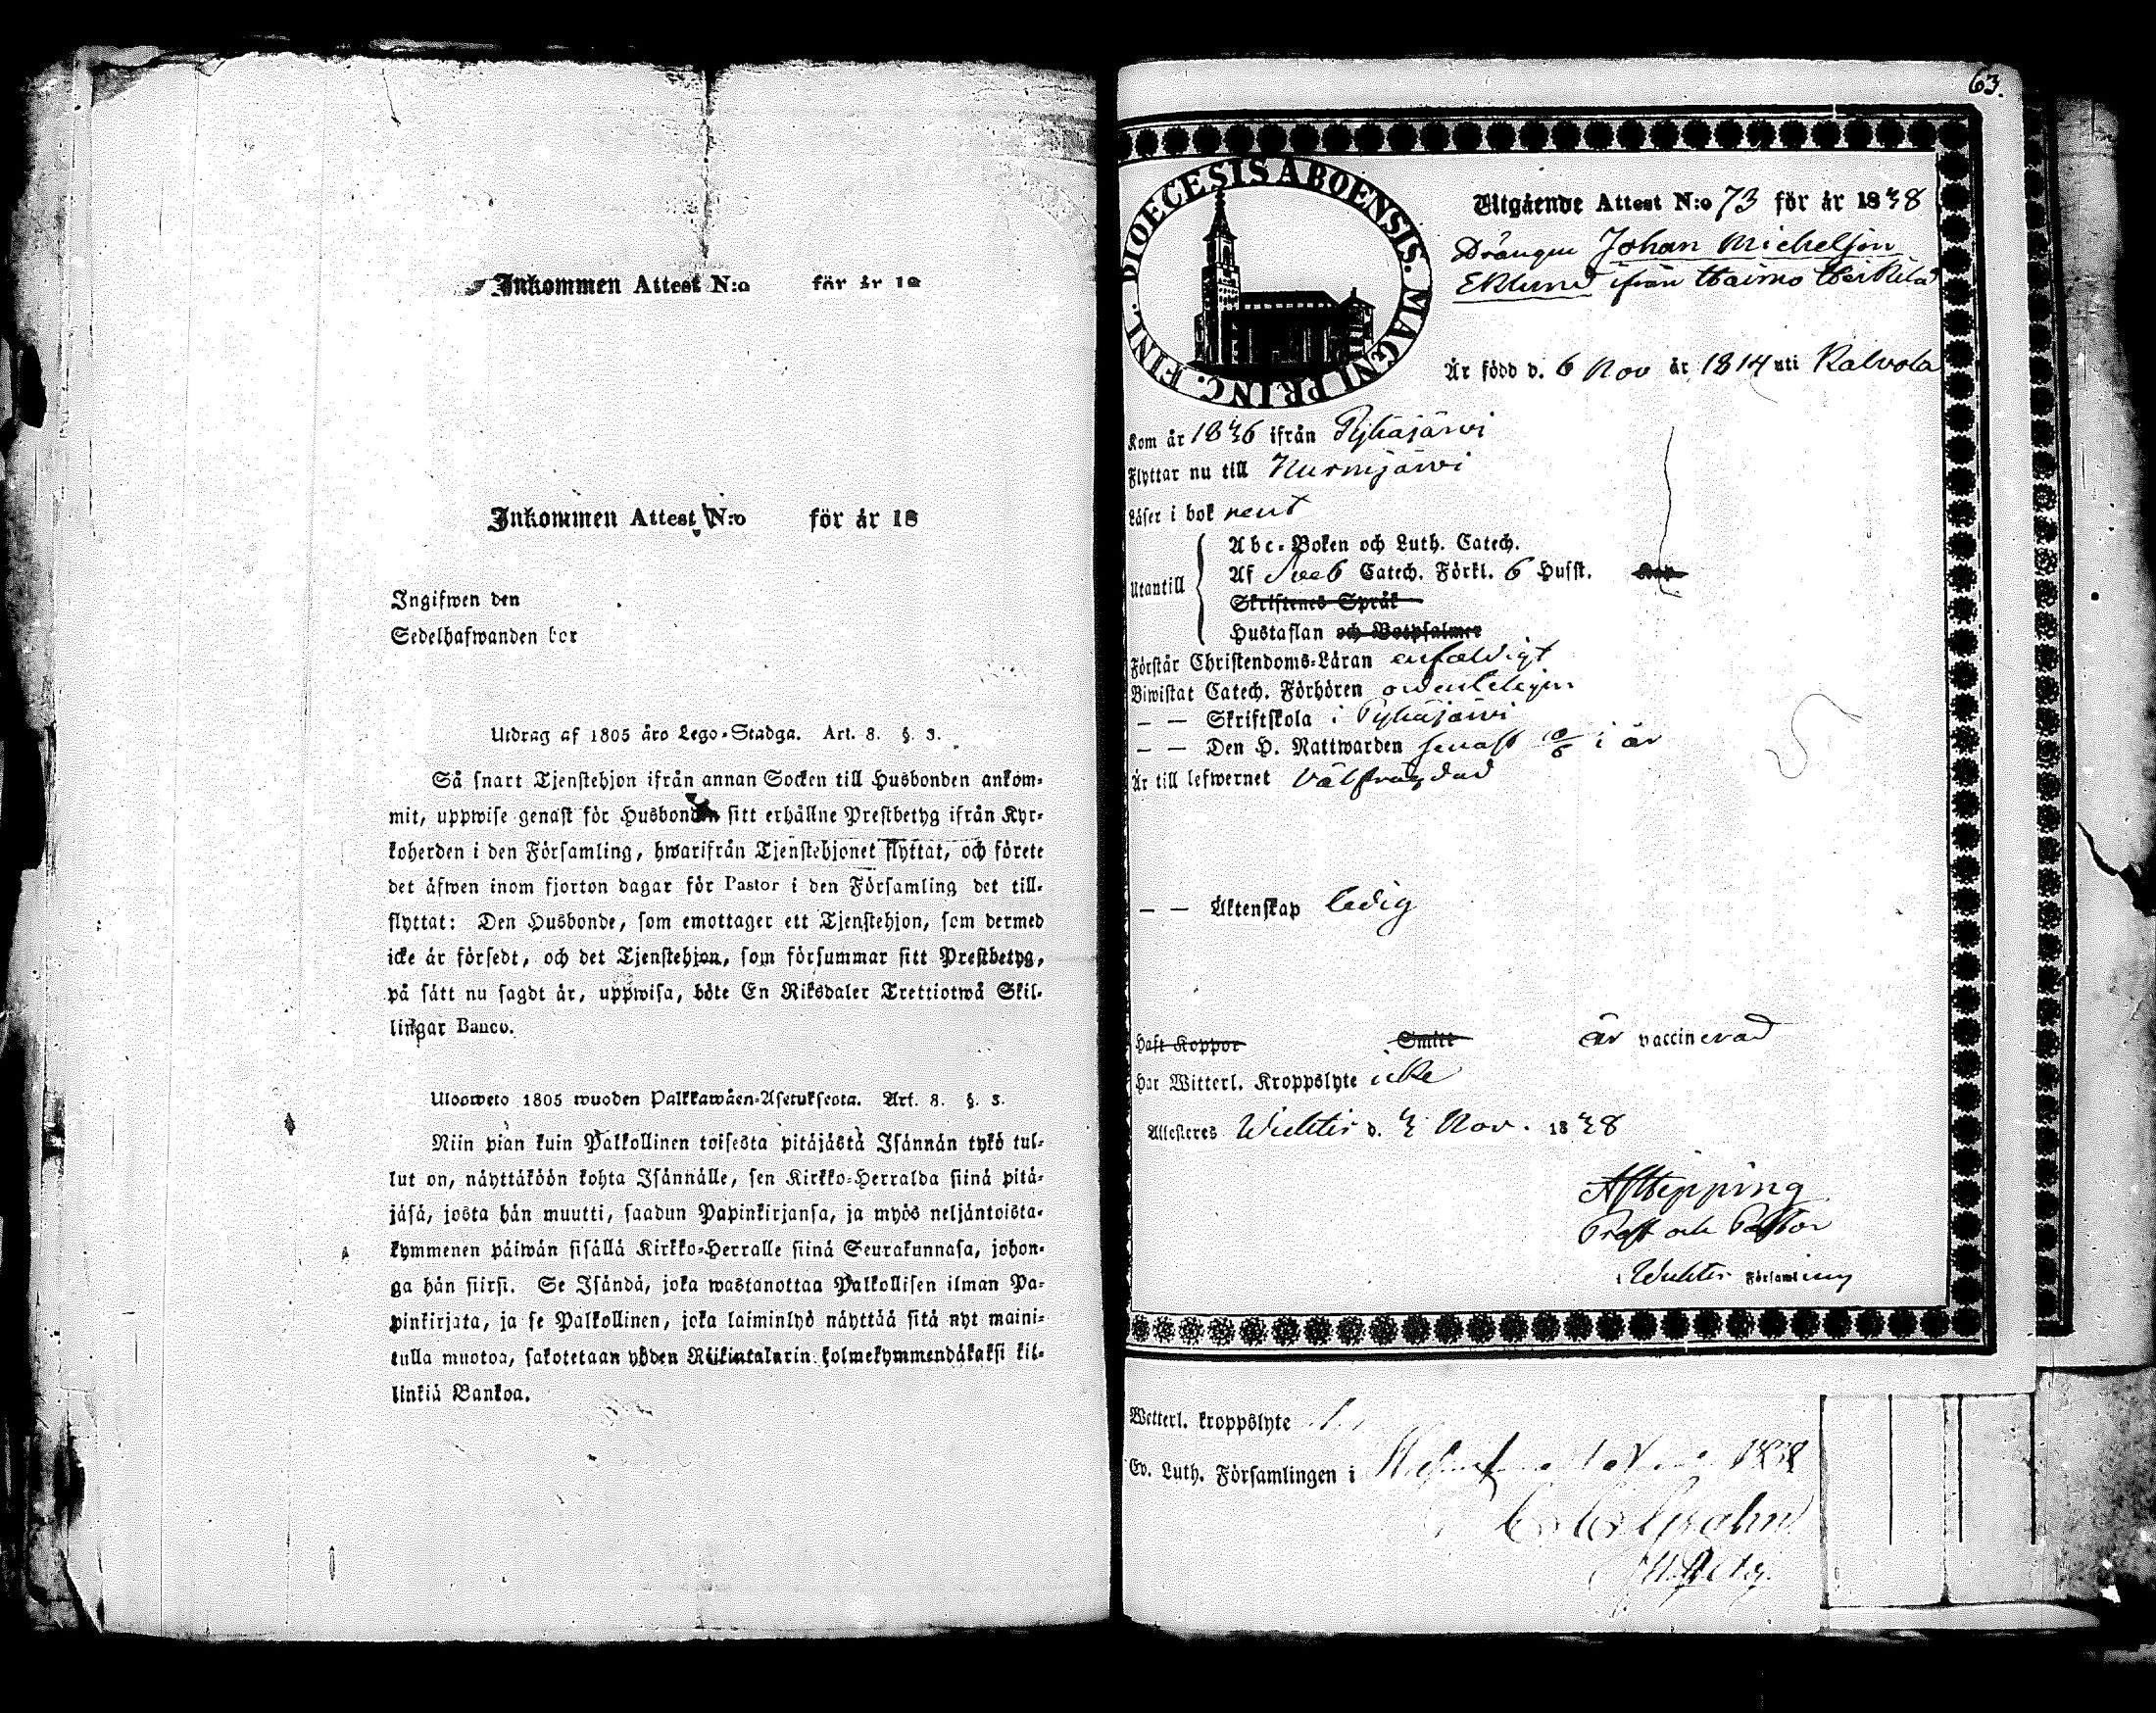 Inkommen Attest N:o för år 18
Inkommen Attest N:o för år 18
Ingifwen den
Sedelhafwanden bor
Utdrag af 1805 års Lego-Stadga. Art. 8. §. 3.
Så snart Tjenstehjon ifrån annan Socken till Husbonden ankom-
mit, uppwise genast för Husbonden sitt erhållne Prestbetyg ifrån Kyr-
koherden i den Församling, hwarifrån Tjenstehjonet flyttat, och förete
det äfwen inom fjorton dagar för Pastor i den Församling det till-
flyttat: Den Husbonde, som emottager ett Tjenstehjon, som dermed
icke är försedt, och det Tjenstehjon, som försummar sitt Prestbetyg,
på sätt nu sagdt är, uppwisa, böte En Riksdaler Trettiotwå Skil-
lingar Banco.
Uloosweto 1805 wuoden Palkkawäen-Asetuksesta. Art. 8. §. 3.
Niin pian kuin Palkollinen toisesta pitäjästä Isännän tykö tul-
lut on, näyttäköön kohta Isännälle, sen Kirkko-Herralda siinä pitä-
jäsä, josta hän muutti, saadun Papinkirjansa, ja myös neljäntoista-
kymmenen päiwän sisällä Kirkko-Herralle siinä Seurakunnasa, johon-
ga hän siirsi. Se Isändä, joka wastanottaa Palkollisen ilman Pa-
pinkirjata, ja se Palkollinen, joka laiminlyö näyttää sitä nyt maini-
tulla muotoa, sakotetaan yhden Riikintalarin kolmekymmendäkaksi kil-
linkiä Bankoa.
63.
DIOECESIS ABOENSIS. MAGNI PRINC. FINL.
Utgående Attest N:o 73 för år 1838
Drängen Johan Michelsson
Eklund ifrån Haimo Heikkilä
Är född d. 6 Nov år 1814 uti Kalvola
Kom år 1836 ifrån Pyhäjärvi
Flyttar nu till Nurmijärvi
Läser i bok rent
Utantill
Abc-Boken och Luth. Catech.
Af Sveb Catech. Förkl. 6 Husst.
Skriftenes Språk
Hustaflan och Botpsalmer
Förstår Christendoms-Läran enfaldigt
Biwistat Catech. Förhören ordenteligen
— — Skriftskola i Pyhäjärvi
— — Den H. Nattwarden senast 10/6 i år
Är till lefwernet välfrägdad
— — Äktenskap ledig
Haft Koppor Smitt är vaccinerad
Har Witterl. Kroppslyte icke
Attesteres Wichtis d. 3 Nov. 1838
Prost och Pastor
i Wichtis Församling
Wetterl. kroppslyte
Ev. Luth. Församlingen i 1838